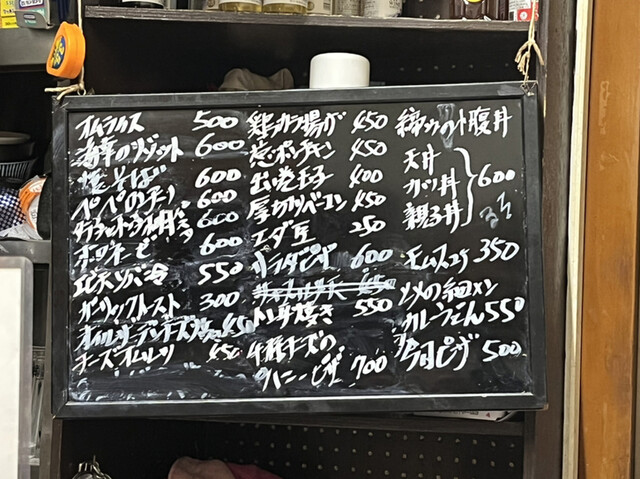 オムライス 500
海草のリゾット 600
焼そば 600
ペペロンチーノ 600
600
ボロネーゼ 600
550
ガーリックトースト 300
オイルサーディンチーズ 450
チーズオムレツ 450
鶏カラ揚げ 450
ポンチキン 450
出巻玉子 400
厚切りベーコン 450
エダ豆 250
サラダピザ 600
トン平焼き 550
4種チーズの
ハニーピザ 700
締めの小腹丼
天丼
カツ丼 600
親子丼
350
〆の細メン
カレーうどん 550
今月ピザ 500